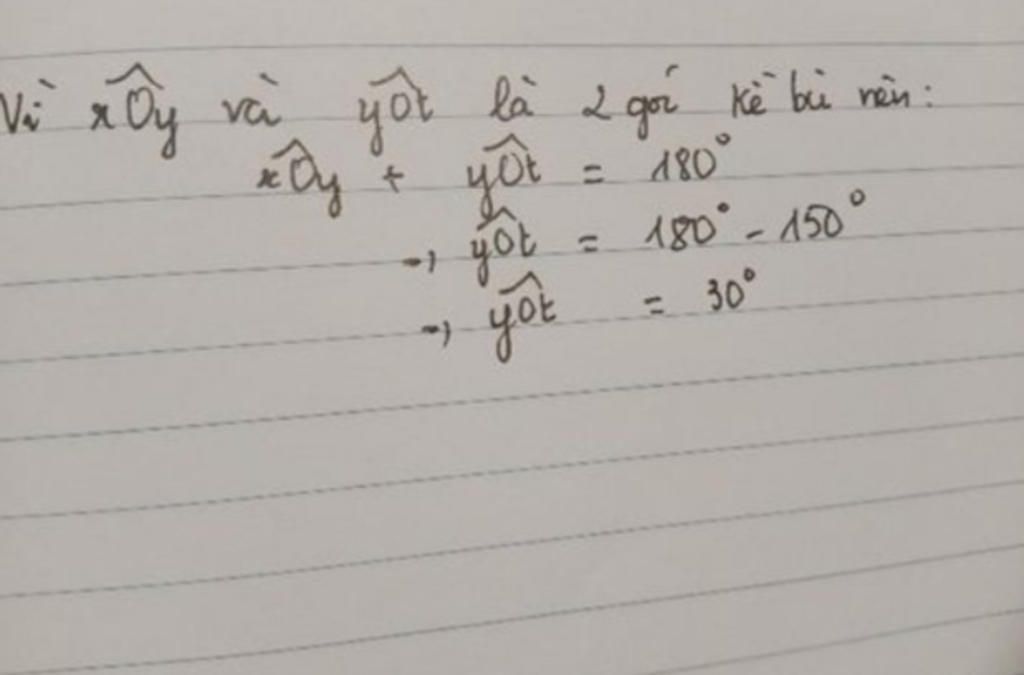 Vì xÔy và yÔt là 2 gói kề bù nên:
xÔy + yÔt = 180°
→ yÔt = 180° - 150°
→ yÔt = 30°